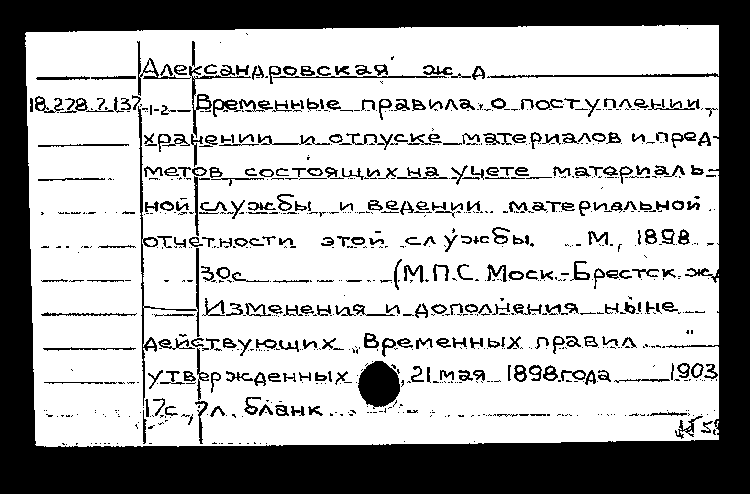 Александровская ж. д
18.228.7.137-1-2 Временные правила о поступлении,
хранении и отпуске материалов и пред-
метов, состоящих на учете материаль-
ной службы, и ведении материальной
отчетности этой службы. М., 1898
30с (М.П.С. Моск.-Брестск. жд
Изменения и дополнения ныне
действующих „Временных правил "
утвержденных 21 мая 1898 года 1903
17с., 7л. бланк